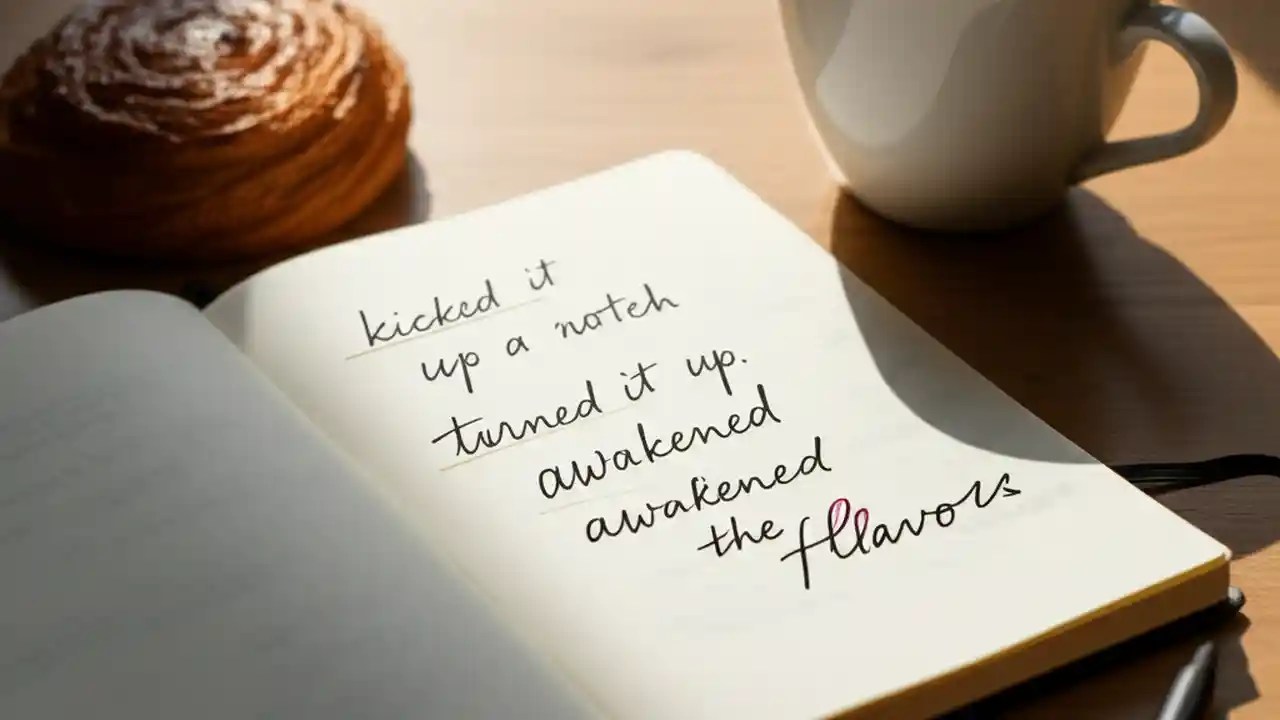 kicked it
up a notch
turned it up.
awakened
awakened
the fllavors